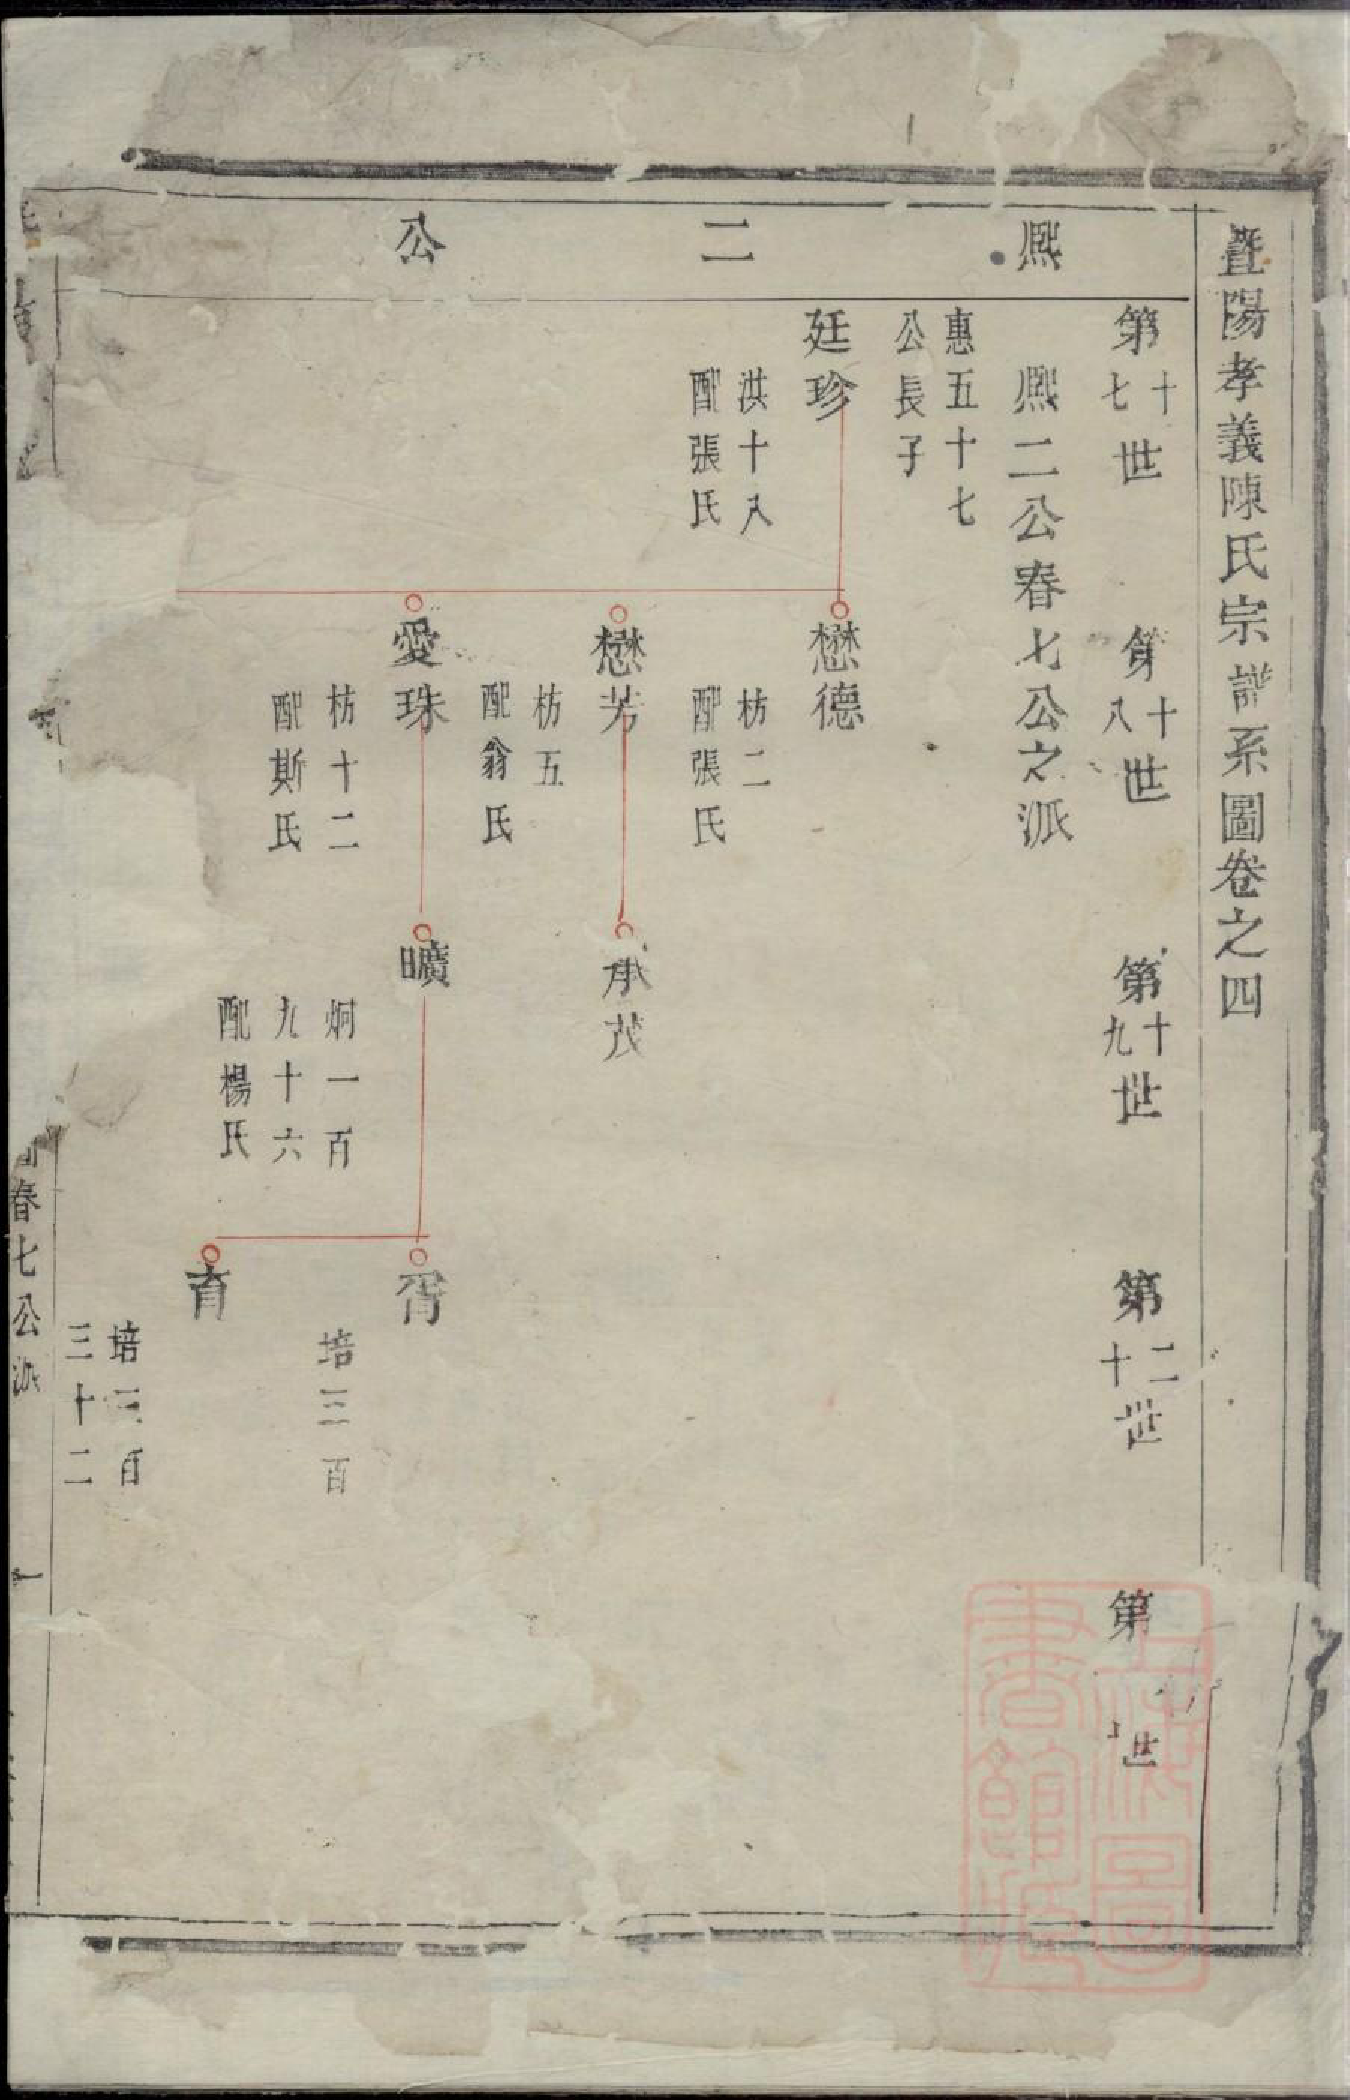 暨陽孝義陳氏宗譜系圖卷之四
熈二公
第十七世
第十八世
第十九世
第二十世
第
世
熈二公春七公之派
惠五十七
公長子
廷珍
洪十八
配張氏
懋德
枋二
配張氏
懋芳
枋五
配翁氏
承茂
愛珠
枋十二
配斯氏
曠
炯一百
九十六
配楊氏
胥
培三百
育
培三百
三十二
春七公派
一
上海圖
書館藏